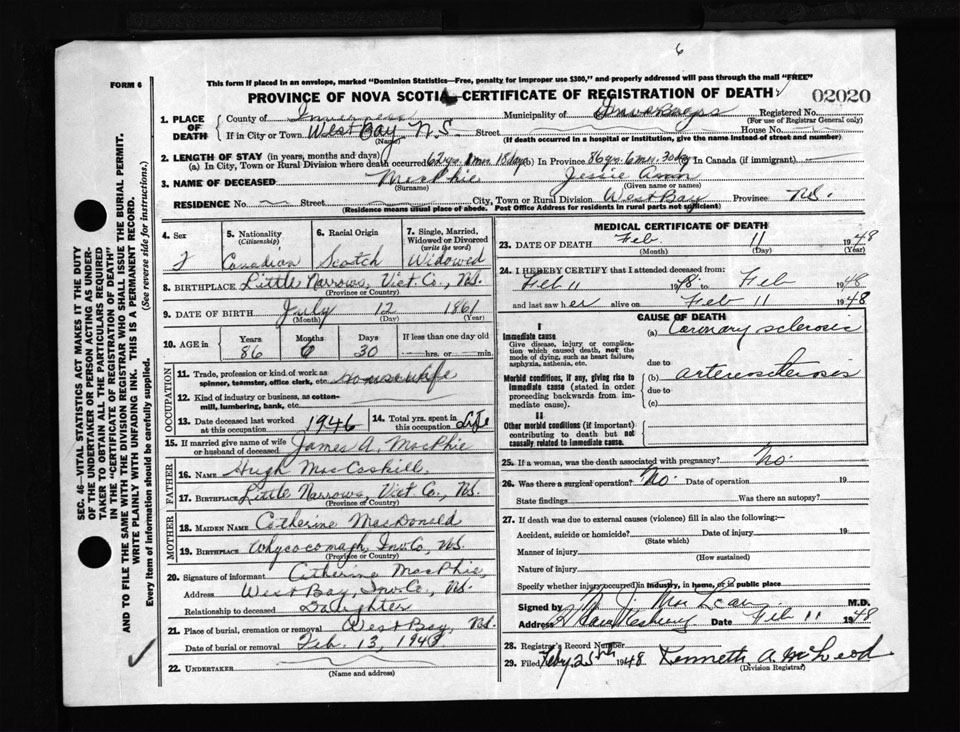 6
FORM 6
This form if placed in an envelope, marked "Dominion Statistics—Free, penalty for improper use $300," and properly addressed will pass through the mail "FREE"
PROVINCE OF NOVA SCOTIA—CERTIFICATE OF REGISTRATION OF DEATH
02020
1. PLACE OF DEATH
County of Inverness
Municipality of Inverness
Registered No.
(For use of Registrar General only)
If in City or Town West Bay N.S. Street
House No.
(Name)
(If death occurred in a hospital or institution, give the name instead of street and number)
2. LENGTH OF STAY (in years, months and days)
(a) In City, Town or Rural Division where death occurred 62 yrs. 8 mos. 18 days (b) In Province 86 yrs. 6 ms. 30 dys In Canada (if immigrant)
3. NAME OF DECEASED MacPhie Jessie Ann
(Surname) (Given name or names)
RESIDENCE No. Street City, Town or Rural Division West Bay Province N.S.
(Residence means usual place of abode. Post Office Address for residents in rural parts not sufficient)
4. Sex
5. Nationality (Citizenship)
6. Racial Origin
7. Single, Married, Widowed or Divorced (write the word)
F Canadian Scotch Widowed
8. BIRTHPLACE Little Narrows, Vict. Co., N.S.
(Province or Country)
9. DATE OF BIRTH July 12 1861
(Month) (Day) (Year)
10. AGE in Years Months Days If less than one day old
86 6 30 hrs. or min.
OCCUPATION
11. Trade, profession or kind of work as spinner, teamster, office clerk, etc. Housewife
12. Kind of industry or business, as cotton-mill, lumbering, bank, etc.
13. Date deceased last worked at this occupation 1946
14. Total yrs. spent in this occupation Life
15. If married give name of wife or husband of deceased James A. MacPhie
FATHER
16. Name Hugh MacCaskill
17. Birthplace Little Narrows, Vict. Co., N.S.
MOTHER
18. MAIDEN NAME Catherine MacDonald
19. BIRTHPLACE Whycocomagh, Inv. Co., N.S.
(Province or Country)
20. Signature of informant Catherine MacPhie,
Address West Bay, Inv. Co., N.S.
Relationship to deceased Daughter
21. Place of burial, cremation or removal West Bay, N.S.
Date of burial or removal Feb. 13, 1948
22. UNDERTAKER
(Name and address)
MEDICAL CERTIFICATE OF DEATH
23. DATE OF DEATH Feb. 11 1948
(Month) (Day) (Year)
24. I HEREBY CERTIFY that I attended deceased from:
Feb 11 1948 to Feb 1948
and last saw her alive on Feb 11 1948
CAUSE OF DEATH
I
Immediate cause
Give disease, injury or complication which caused death, not the mode of dying, such as heart failure, asphyxia, asthenia, etc.
(a) Coronary sclerosis
due to
Morbid conditions, if any, giving rise to immediate cause (stated in order proceeding backwards from immediate cause).
(b) arteriosclerosis
due to
(c)
II
Other morbid conditions (if important) contributing to death but not causally related to immediate cause.
25. If a woman, was the death associated with pregnancy? No.
26. Was there a surgical operation? No. Date of operation 19
State findings Was there an autopsy?
27. If death was due to external causes (violence) fill in also the following:—
Accident, suicide or homicide? Date of injury 19
(State which)
Manner of injury
(How sustained)
Nature of injury
Specify whether injury occurred in industry, in home, or in public place
Signed by M.D.
Address Date Feb 11 1948
28. Registrar's Record Number
29. Filed Feby 25th 1948 Kenneth A. McLeod
(Division Registrar)
SEC. 46—VITAL STATISTICS ACT MAKES IT THE DUTY
OF THE UNDERTAKER OR PERSON ACTING AS UNDER-
TAKER TO OBTAIN ALL THE PARTICULARS REQUIRED
IN THE "CERTIFICATE OF REGISTRATION OF DEATH"
AND TO FILE THE SAME WITH THE DIVISION REGISTRAR WHO SHALL ISSUE THE BURIAL PERMIT.
WRITE PLAINLY WITH UNFADING INK. THIS IS A PERMANENT RECORD.
Every item of information should be carefully supplied. (See reverse side for instructions.)